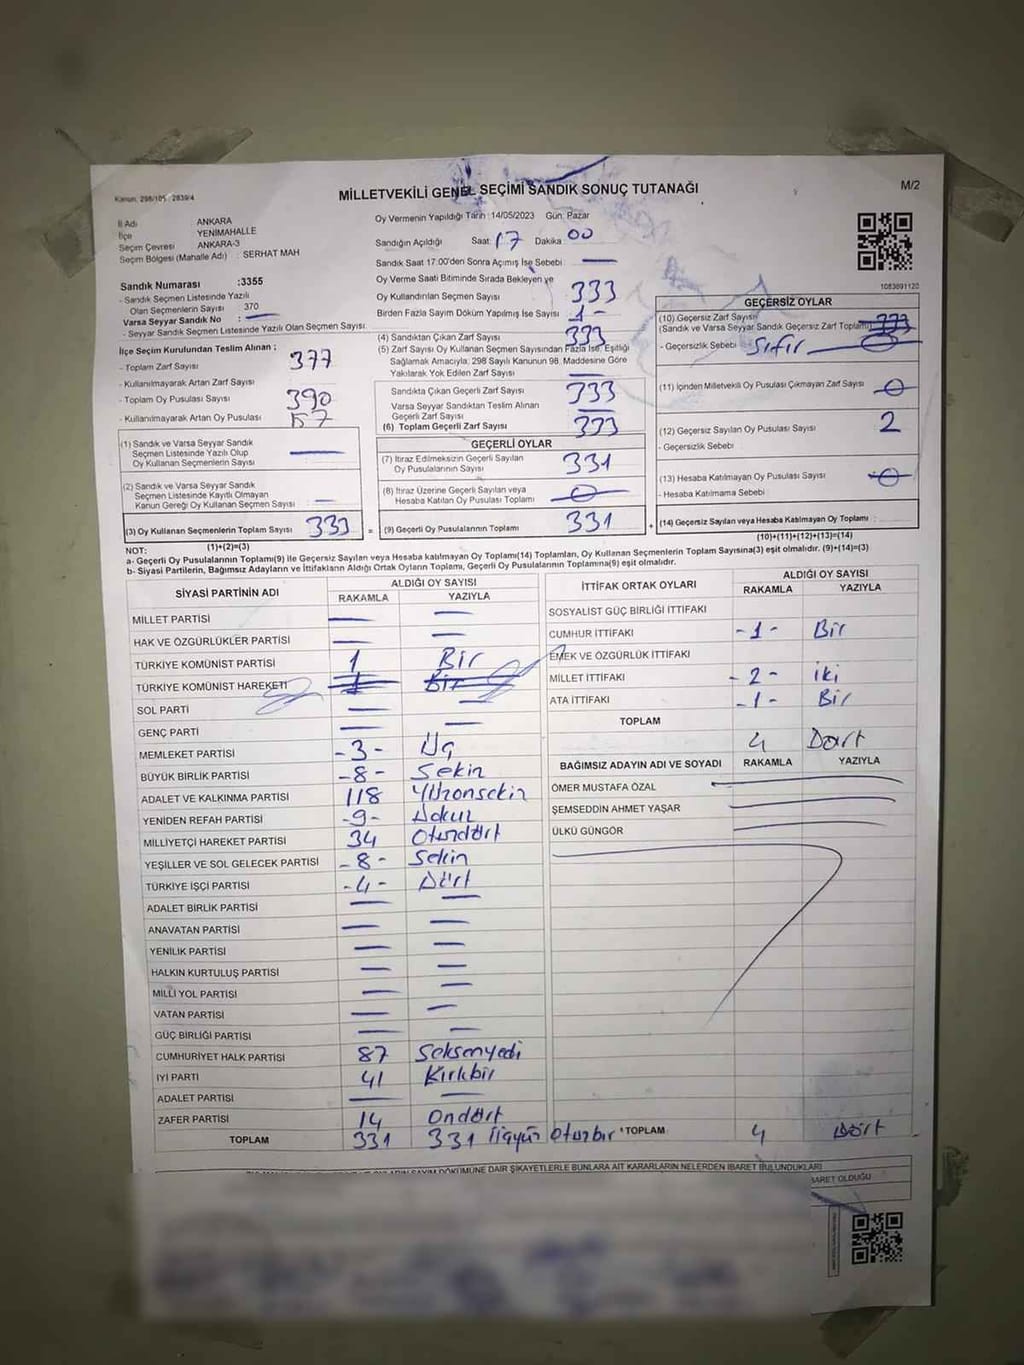 Kanun: 298/105, 2839/4
MİLLETVEKİLİ GENEL SEÇİMİ SANDIK SONUÇ TUTANAĞI
M/2
İl Adı ANKARA
İlçe YENİMAHALLE
Seçim Çevresi ANKARA-3
Seçim Bölgesi (Mahalle Adı) : SERHAT MAH
Sandık Numarası :3355
- Sandık Seçmen Listesinde Yazılı
Olan Seçmenlerin Sayısı 370
Varsa Seyyar Sandık No :
- Seyyar Sandık Seçmen Listesinde Yazılı Olan Seçmen Sayısı:
İlçe Seçim Kurulundan Teslim Alınan :
- Toplam Zarf Sayısı 377
- Kullanılmayarak Artan Zarf Sayısı
- Toplam Oy Pusulası Sayısı 390
- Kullanılmayarak Artan Oy Pusulası 57
(1) Sandık ve Varsa Seyyar Sandık
Seçmen Listesinde Yazılı Olup
Oy Kullanan Seçmenlerin Sayısı
(2) Sandık ve Varsa Seyyar Sandık
Seçmen Listesinde Kayıtlı Olmayan
Kanun Gereği Oy Kullanan Seçmen Sayısı
(3) Oy Kullanan Seçmenlerin Toplam Sayısı 333 =
(1)+(2)=(3)
Oy Vermenin Yapıldığı Tarih : 14/05/2023 Gün: Pazar
Sandığın Açıldığı Saat 17 Dakika 00
Sandık Saat 17.00'den Sonra Açılmış İse Sebebi
Oy Verme Saati Bitiminde Sırada Bekleyen ve
Oy Kullandırılan Seçmen Sayısı 333
Birden Fazla Sayım Döküm Yapılmış İse Sayısı 1-
(4) Sandıktan Çıkan Zarf Sayısı 333
(5) Zarf Sayısı Oy Kullanan Seçmen Sayısından Fazla İse, Eşitliği
Sağlamak Amacıyla, 298 Sayılı Kanunun 98. Maddesine Göre
Yakılarak Yok Edilen Zarf Sayısı
Sandıkta Çıkan Geçerli Zarf Sayısı 333
Varsa Seyyar Sandıktan Teslim Alınan
Geçerli Zarf Sayısı
(6) Toplam Geçerli Zarf Sayısı 333
GEÇERLİ OYLAR
(7) İtiraz Edilmeksizin Geçerli Sayılan
Oy Pusulalarının Sayısı 331
(8) İtiraz Üzerine Geçerli Sayılan veya
Hesaba Katılan Oy Pusulası Toplamı 0
(9) Geçerli Oy Pusulalarının Toplamı 331 +
1083691120
GEÇERSİZ OYLAR
(10) Geçersiz Zarf Sayısı
(Sandık ve Varsa Seyyar Sandık Geçersiz Zarf Toplamı) 333
- Geçersizlik Sebebi Sıfır 0
(11) İçinden Milletvekili Oy Pusulası Çıkmayan Zarf Sayısı 0
(12) Geçersiz Sayılan Oy Pusulası Sayısı 2
- Geçersizlik Sebebi
(13) Hesaba Katılmayan Oy Pusulası Sayısı 0
- Hesaba Katılmama Sebebi
(14) Geçersiz Sayılan veya Hesaba Katılmayan Oy Toplamı :
(10)+(11)+(12)+(13)=(14)
NOT:
a- Geçerli Oy Pusulalarının Toplamı(9) ile Geçersiz Sayılan veya Hesaba katılmayan Oy Toplamı(14) Toplamları, Oy Kullanan Seçmenlerin Toplam Sayısına(3) eşit olmalıdır. (9)+(14)=(3)
b- Siyasi Partilerin, Bağımsız Adayların ve İttifakların Aldığı Ortak Oyların Toplamı, Geçerli Oy Pusulalarının Toplamına(9) eşit olmalıdır.
SİYASİ PARTİNİN ADI ALDIĞI OY SAYISI
RAKAMLA YAZIYLA
MİLLET PARTİSİ
HAK VE ÖZGÜRLÜKLER PARTİSİ
TÜRKİYE KOMÜNİST PARTİSİ 1 Bir
TÜRKİYE KOMÜNİST HAREKETİ 1 Bir
SOL PARTİ
GENÇ PARTİ
MEMLEKET PARTİSİ -3- Üç
BÜYÜK BİRLİK PARTİSİ -8- Sekiz
ADALET VE KALKINMA PARTİSİ 118 Yüzonsekiz
YENİDEN REFAH PARTİSİ -9- Dokuz
MİLLİYETÇİ HAREKET PARTİSİ 34 Otuzdört
YEŞİLLER VE SOL GELECEK PARTİSİ -8- Sekiz
TÜRKİYE İŞÇİ PARTİSİ -4- Dört
ADALET BİRLİK PARTİSİ
ANAVATAN PARTİSİ
YENİLİK PARTİSİ
HALKIN KURTULUŞ PARTİSİ
MİLLİ YOL PARTİSİ
VATAN PARTİSİ
GÜÇ BİRLİĞİ PARTİSİ
CUMHURİYET HALK PARTİSİ 87 Seksenyedi
İYİ PARTİ 41 Kırkbir
ADALET PARTİSİ
ZAFER PARTİSİ 14 Ondört
TOPLAM 331 331 Üçyüz Otuzbir
İTTİFAK ORTAK OYLARI ALDIĞI OY SAYISI
RAKAMLA YAZIYLA
SOSYALİST GÜÇ BİRLİĞİ İTTİFAKI
CUMHUR İTTİFAKI -1- Bir
EMEK VE ÖZGÜRLÜK İTTİFAKI
MİLLET İTTİFAKI -2- İki
ATA İTTİFAKI -1- Bir
TOPLAM 4 Dört
BAĞIMSIZ ADAYIN ADI VE SOYADI RAKAMLA YAZIYLA
ÖMER MUSTAFA ÖZAL
ŞEMSEDDİN AHMET YAŞAR
ÜLKÜ GÜNGÖR
TOPLAM 4 Dört
SAYIM DÖKÜMÜNE DAİR ŞİKAYETLERLE BUNLARA AİT KARARLARIN NELERDEN İBARET BULUNDUKLARI
İBARET OLDUĞU